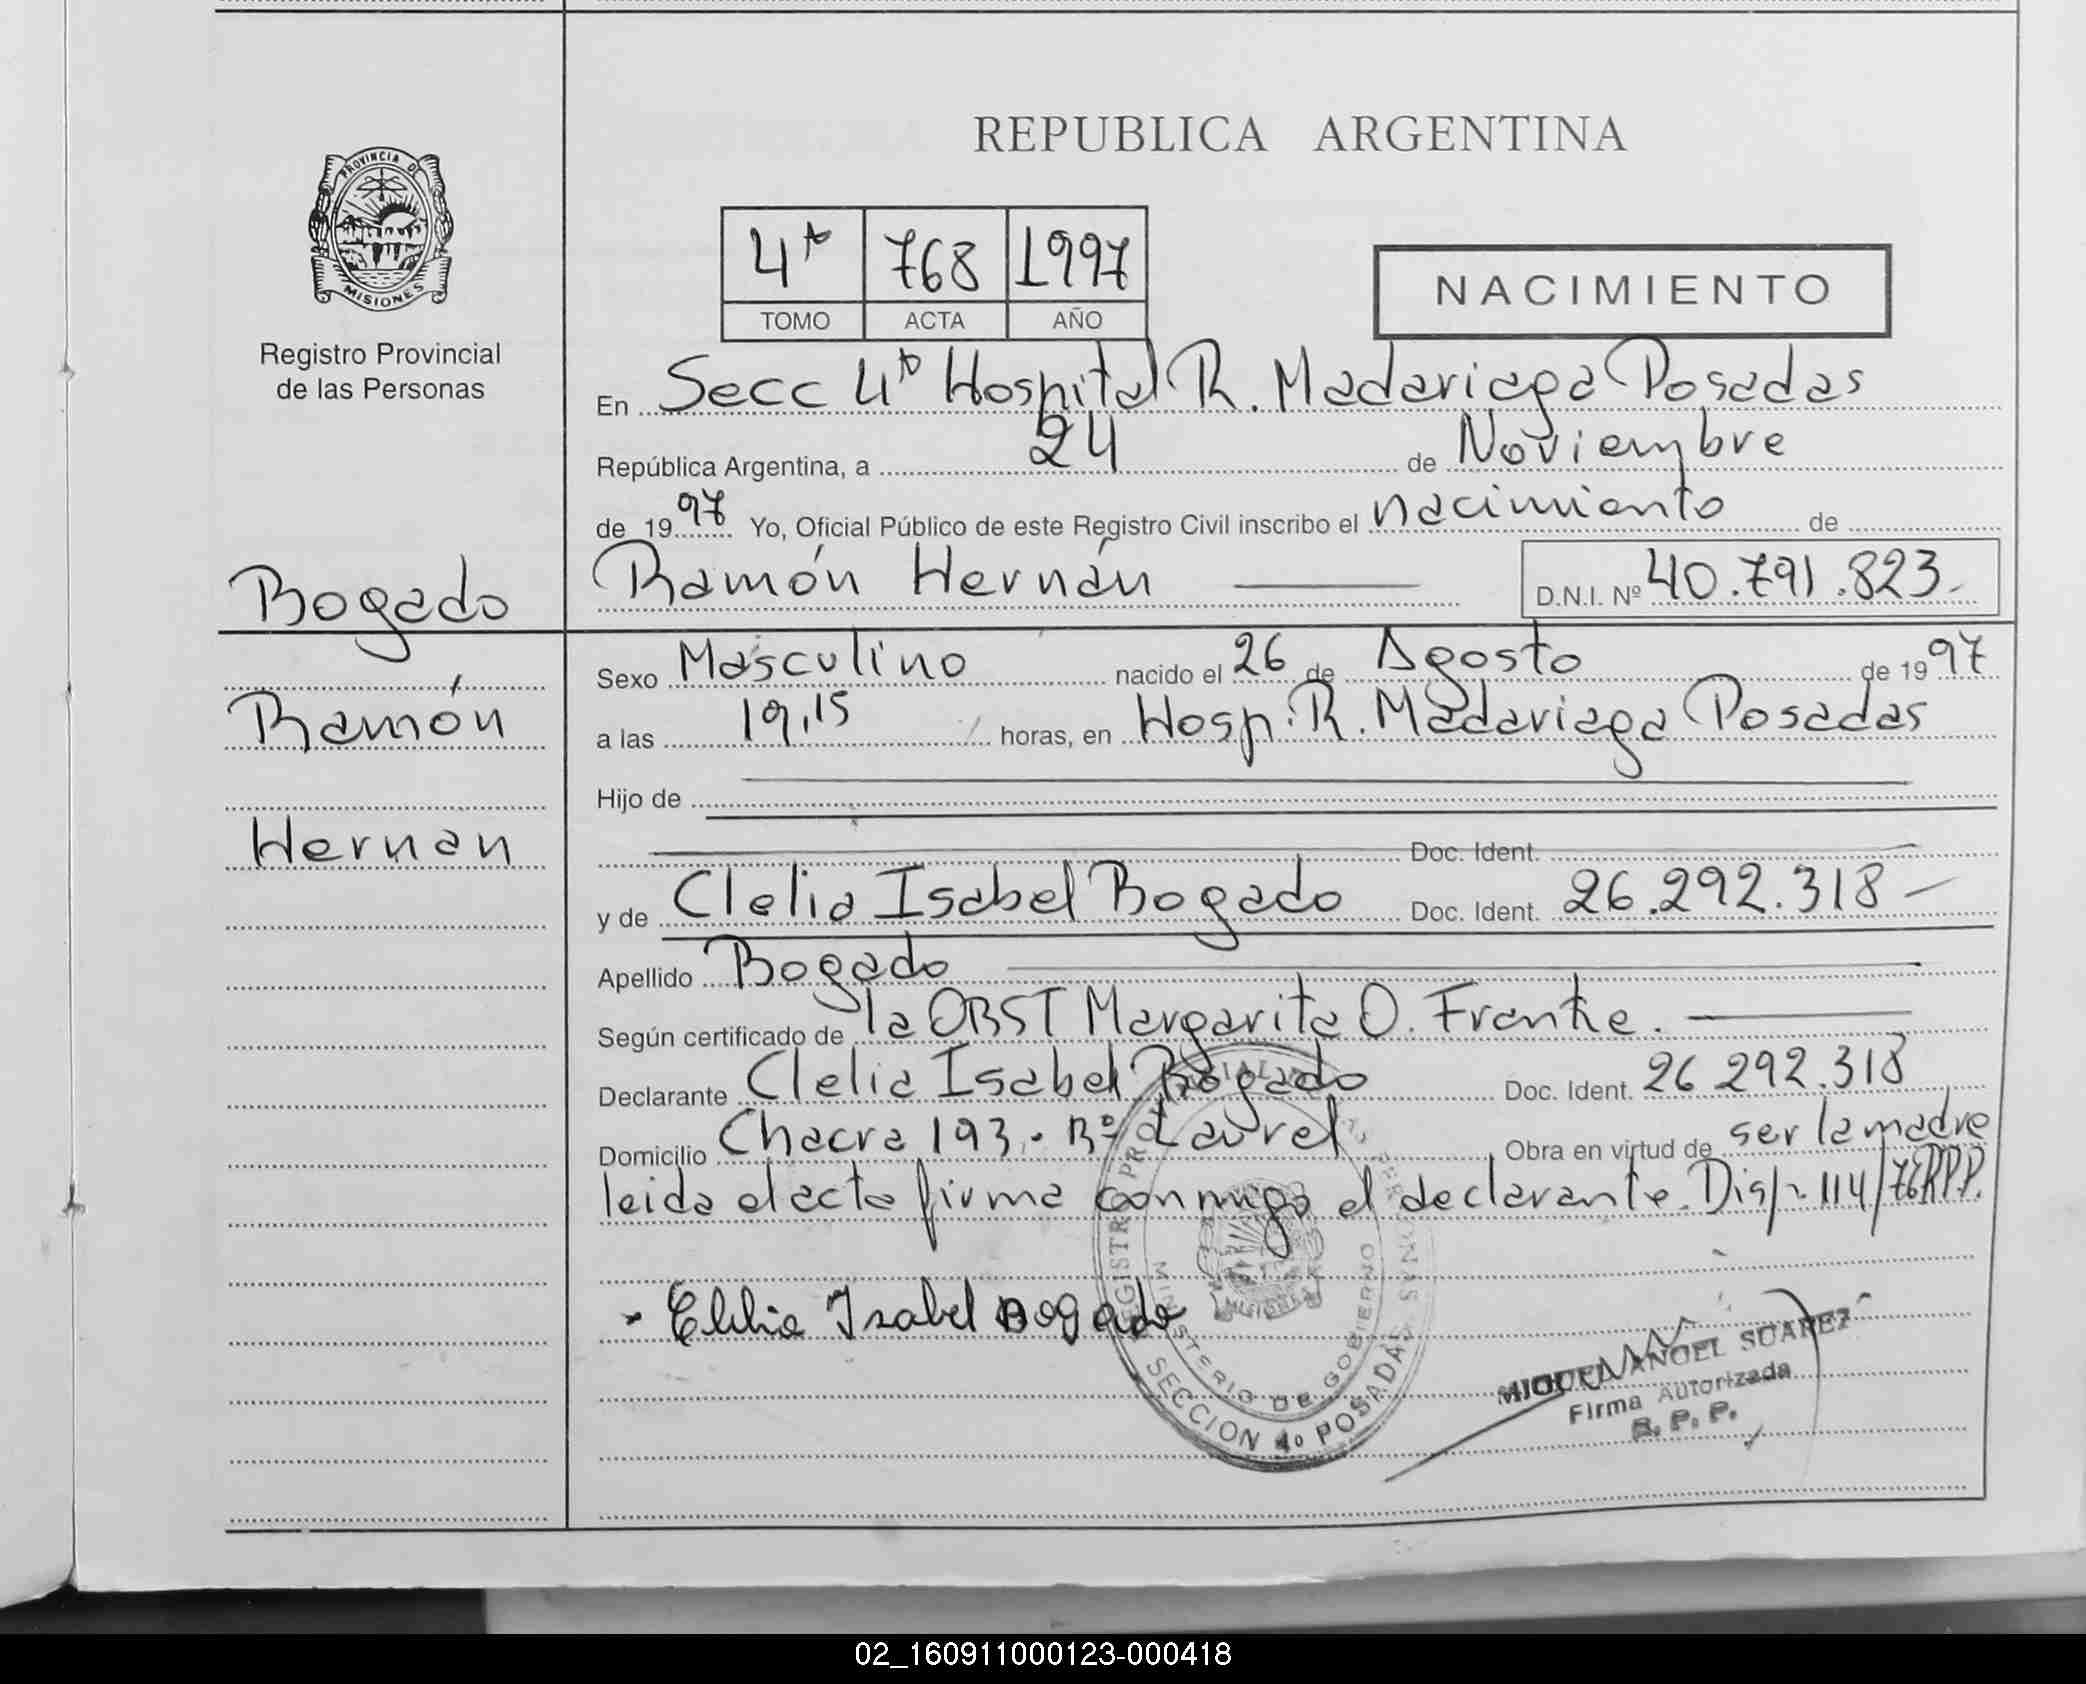 REPUBLICA ARGENTINA
PROVINCIA DE
MISIONES
Registro Provincial
de las Personas
4to 768 1997
TOMO ACTA AÑO
NACIMIENTO
En Secc 4to Hospital R. Madariaga Posadas
República Argentina, a 24 de Noviembre
de 1997 Yo, Oficial Público de este Registro Civil inscribo el nacimiento de
Bogado
Ramón
Hernan
Ramón Hernán D.N.I. Nº 40.791.823.-
Sexo Masculino nacido el 26 de Agosto de 1997
a las 19,15 horas, en Hosp. R. Madariaga Posadas
Hijo de
Doc. Ident.
y de Clelia Isabel Bogado Doc. Ident. 26.292.318-
Apellido Bogado
Según certificado de la OBST Margarita O. Franke.
Declarante Clelia Isabel Bogado Doc. Ident. 26 292.318
Domicilio Chacra 193. Bº Laurel Obra en virtud de ser la madre
leida el acta firma conmigo el declarante. Disp. 114/76RPP.
Clelia Isabel Bogado
REGISTRO PROVINCIAL DE LAS PERSONAS
MINISTERIO DE GOBIERNO
SECCION 4º POSADAS
MIGUEL ANGEL SUAREZ
Firma Autorizada
R. P. P.
02_160911000123-000418